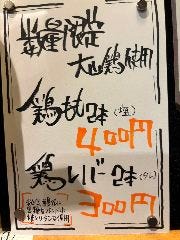 数量限定
大山鶏使用
鶏もも2本(塩)
400円
鶏レバー2本(タレ)
300円